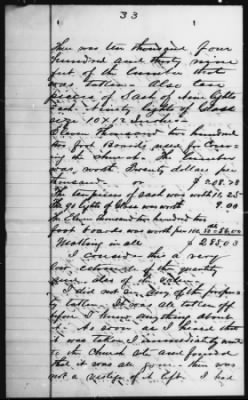 33
There was ten thousand four
hundred and thirty nine
feet of the lumber that
was taken. Also ten
pieces of Sash of nine lights
and ninety lights of Glass
size 10 x 12 inches
Eleven thousand two hundred
two foot Boards used for Cover
ing the church. The lumber
was worth Twenty dollars per
thousand or $ 208.78
The ten pieces of sash was worth 11.25
The 90 lights of Glass was worth 9.00
The Eleven thousand two hundred two
foot boards was worth per
Making in all $ 285.03
I consider this a very
low estimate of the quantity
I did not see any of the proper
ty taken. It was all taken off
before I knew anything about
it. As soon as I heard that
it was taken I immediately went
to the Church and found
that it was all gone. there was
not a vestige of it left. I had